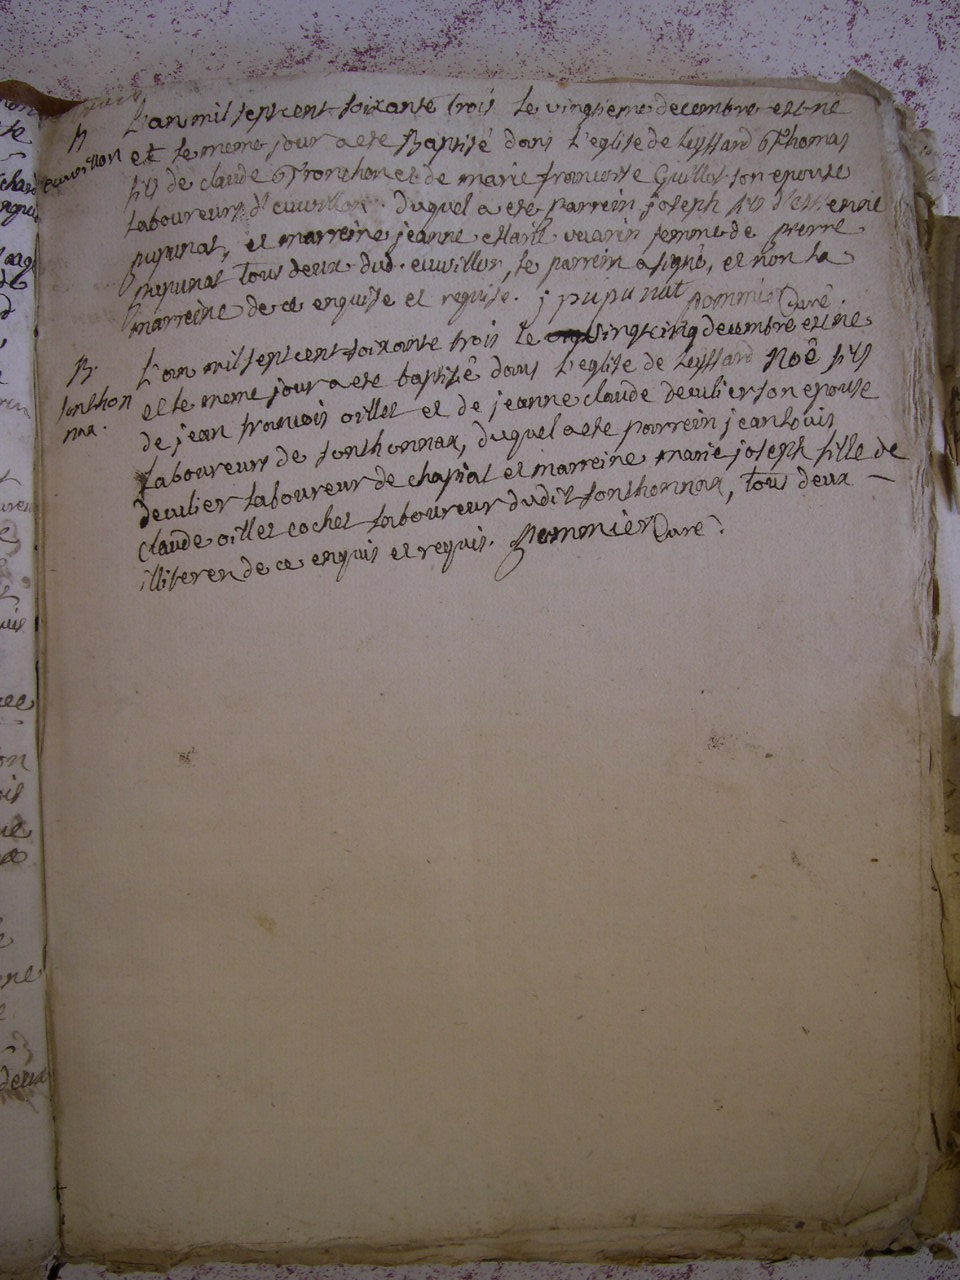 B
euvillon
L'an mil sept cent soixante trois le vingtieme decembre est né
et le meme jour a esté Baptisé dans l'eglise de Leyssard Thomas
fils de claude Tronchon et de marie francoise Guillot son epouse
laboureurs d'euvillon. duquel a esté parrein joseph fils d'estienne
pupunat, et marreine jeanne Marie vuarin femme de pierre
pupunat tous deux dud. euvillon, le parrein a signé, et non la
marreine de ce enquise et requise. j pupunat pommier Curé.
B.
sonthon
nax.
L'an mil sept cent soixante trois le vingt cinq decembre est né
et le meme jour a esté baptisé dans l'eglise de Leyssard Noê fils
de jean francois oillet et de jeanne claude deculier son epouse
laboureurs de sonthonnax, duquel a esté parrein jean Louis
deculier laboureur de chapiat et marreine marie joseph fille de
claude oillet cochet laboureur dudit sonthonnax, tous deux –
illiteres de ce enquis et requis. Pommier Curé.